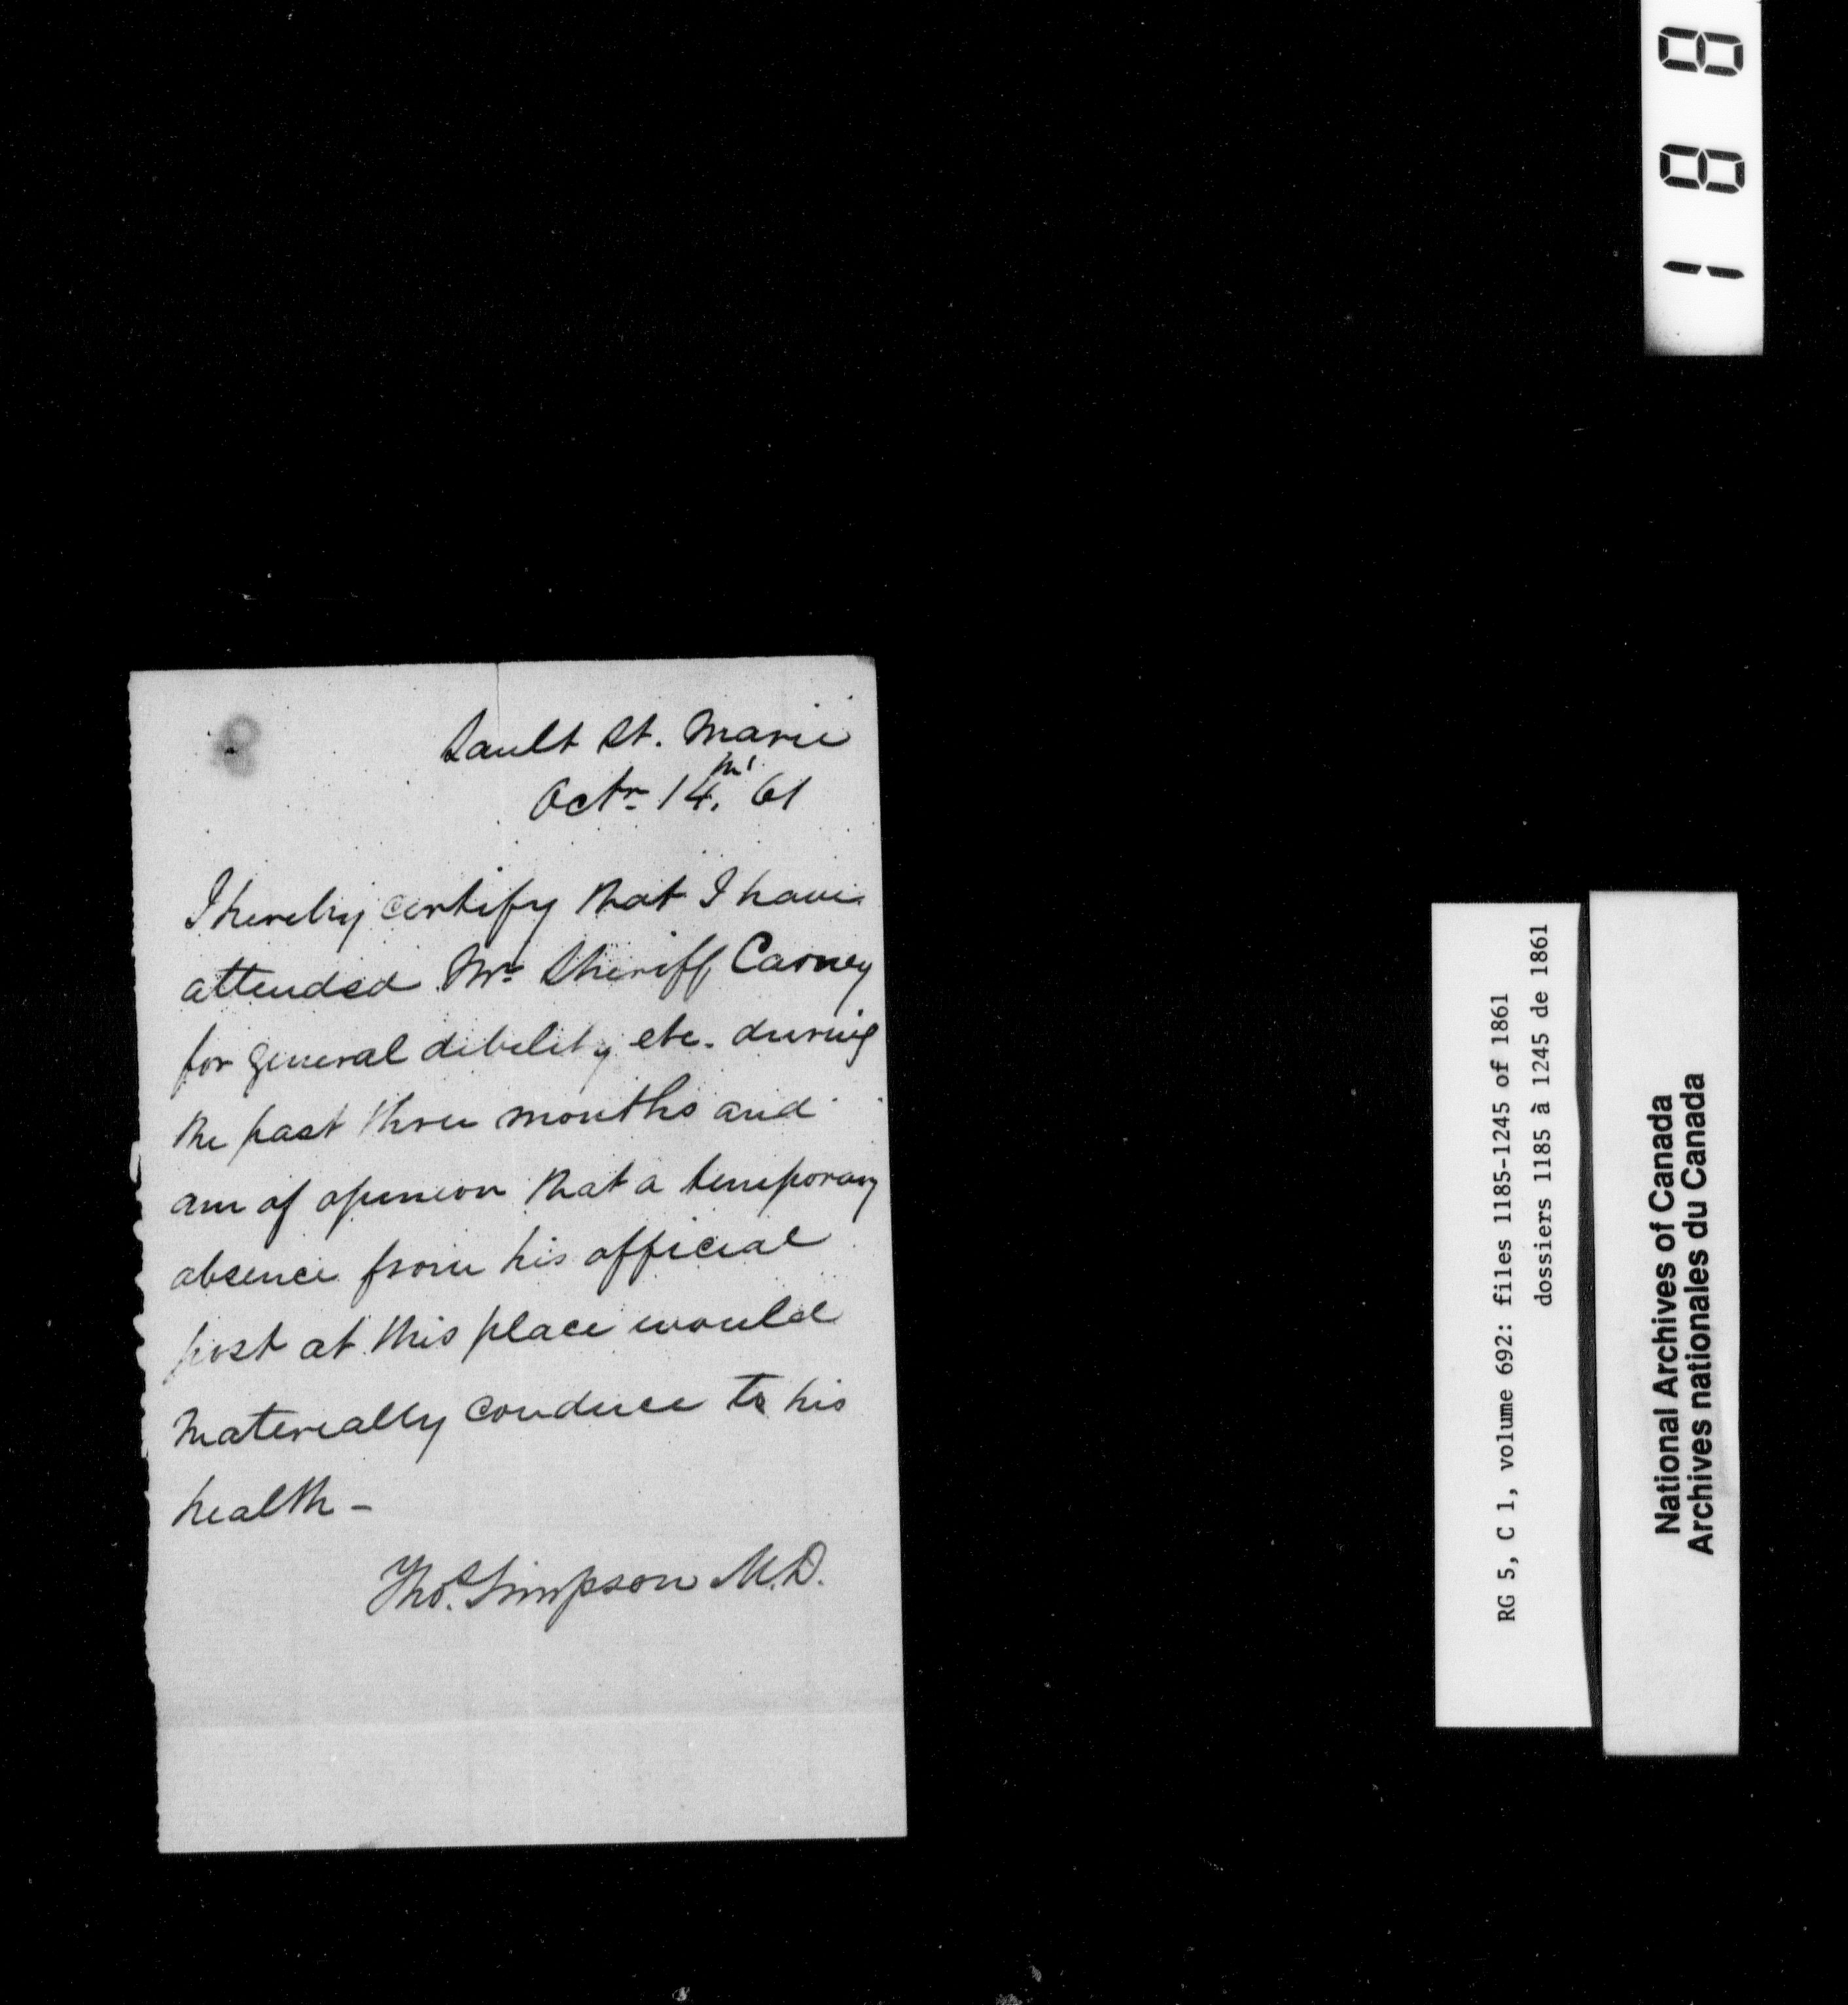 Sault St. Marie
Octr 14th, 61
I hereby certify that I have
attended Mr Sheriff Carney
for general debility etc. during
the past three months and
am of opinion that a temporary
absence from his official
post at this place would
materially conduce to his
health -
Thos. Simpson M.D.
RG 5, C 1, volume 692: files 1185-1245 of 1861
dossiers 1185 à 1245 de 1861
National Archives of Canada
Archives nationales du Canada
188